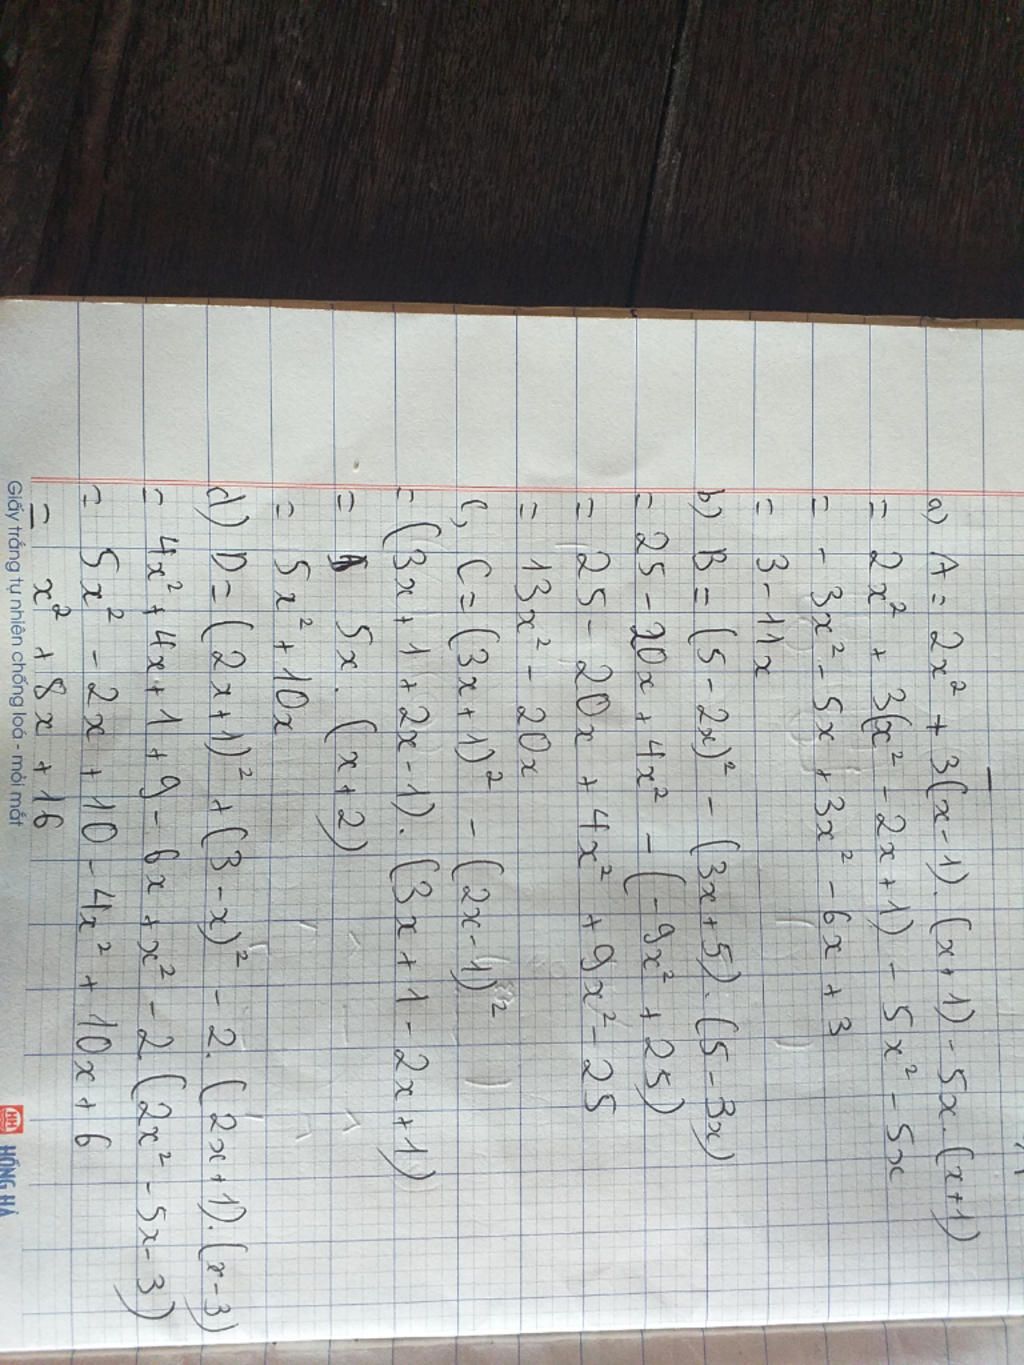 a) A = 2x² + 3(x-1).(x+1) - 5x.(x+1)
= 2x² + 3(x² - 2x+1) - 5x² - 5x
= - 3x² - 5x + 3x² - 6x + 3
= 3 - 11x
b) B = (5 - 2x)² - (3x+5).(5-3x)
= 25 - 20x + 4x² - (-9x² + 25)
= 25 - 20x + 4x² + 9x² - 25
= 13x² - 20x
c, C = (3x+1)² - (2x-1)²
= (3x+1+2x-1).(3x+1-2x+1)
= 5x.(x+2)
= 5x² + 10x
d) D = (2x+1)² + (3-x)² - 2.(2x+1).(x-3)
= 4x² + 4x + 1 + 9 - 6x + x² - 2(2x² - 5x - 3)
= 5x² - 2x + 10 - 4x² + 10x + 6
= x² + 8x + 16
Giấy trắng tự nhiên chống loá - mỏi mắt
HH HỒNG HÀ